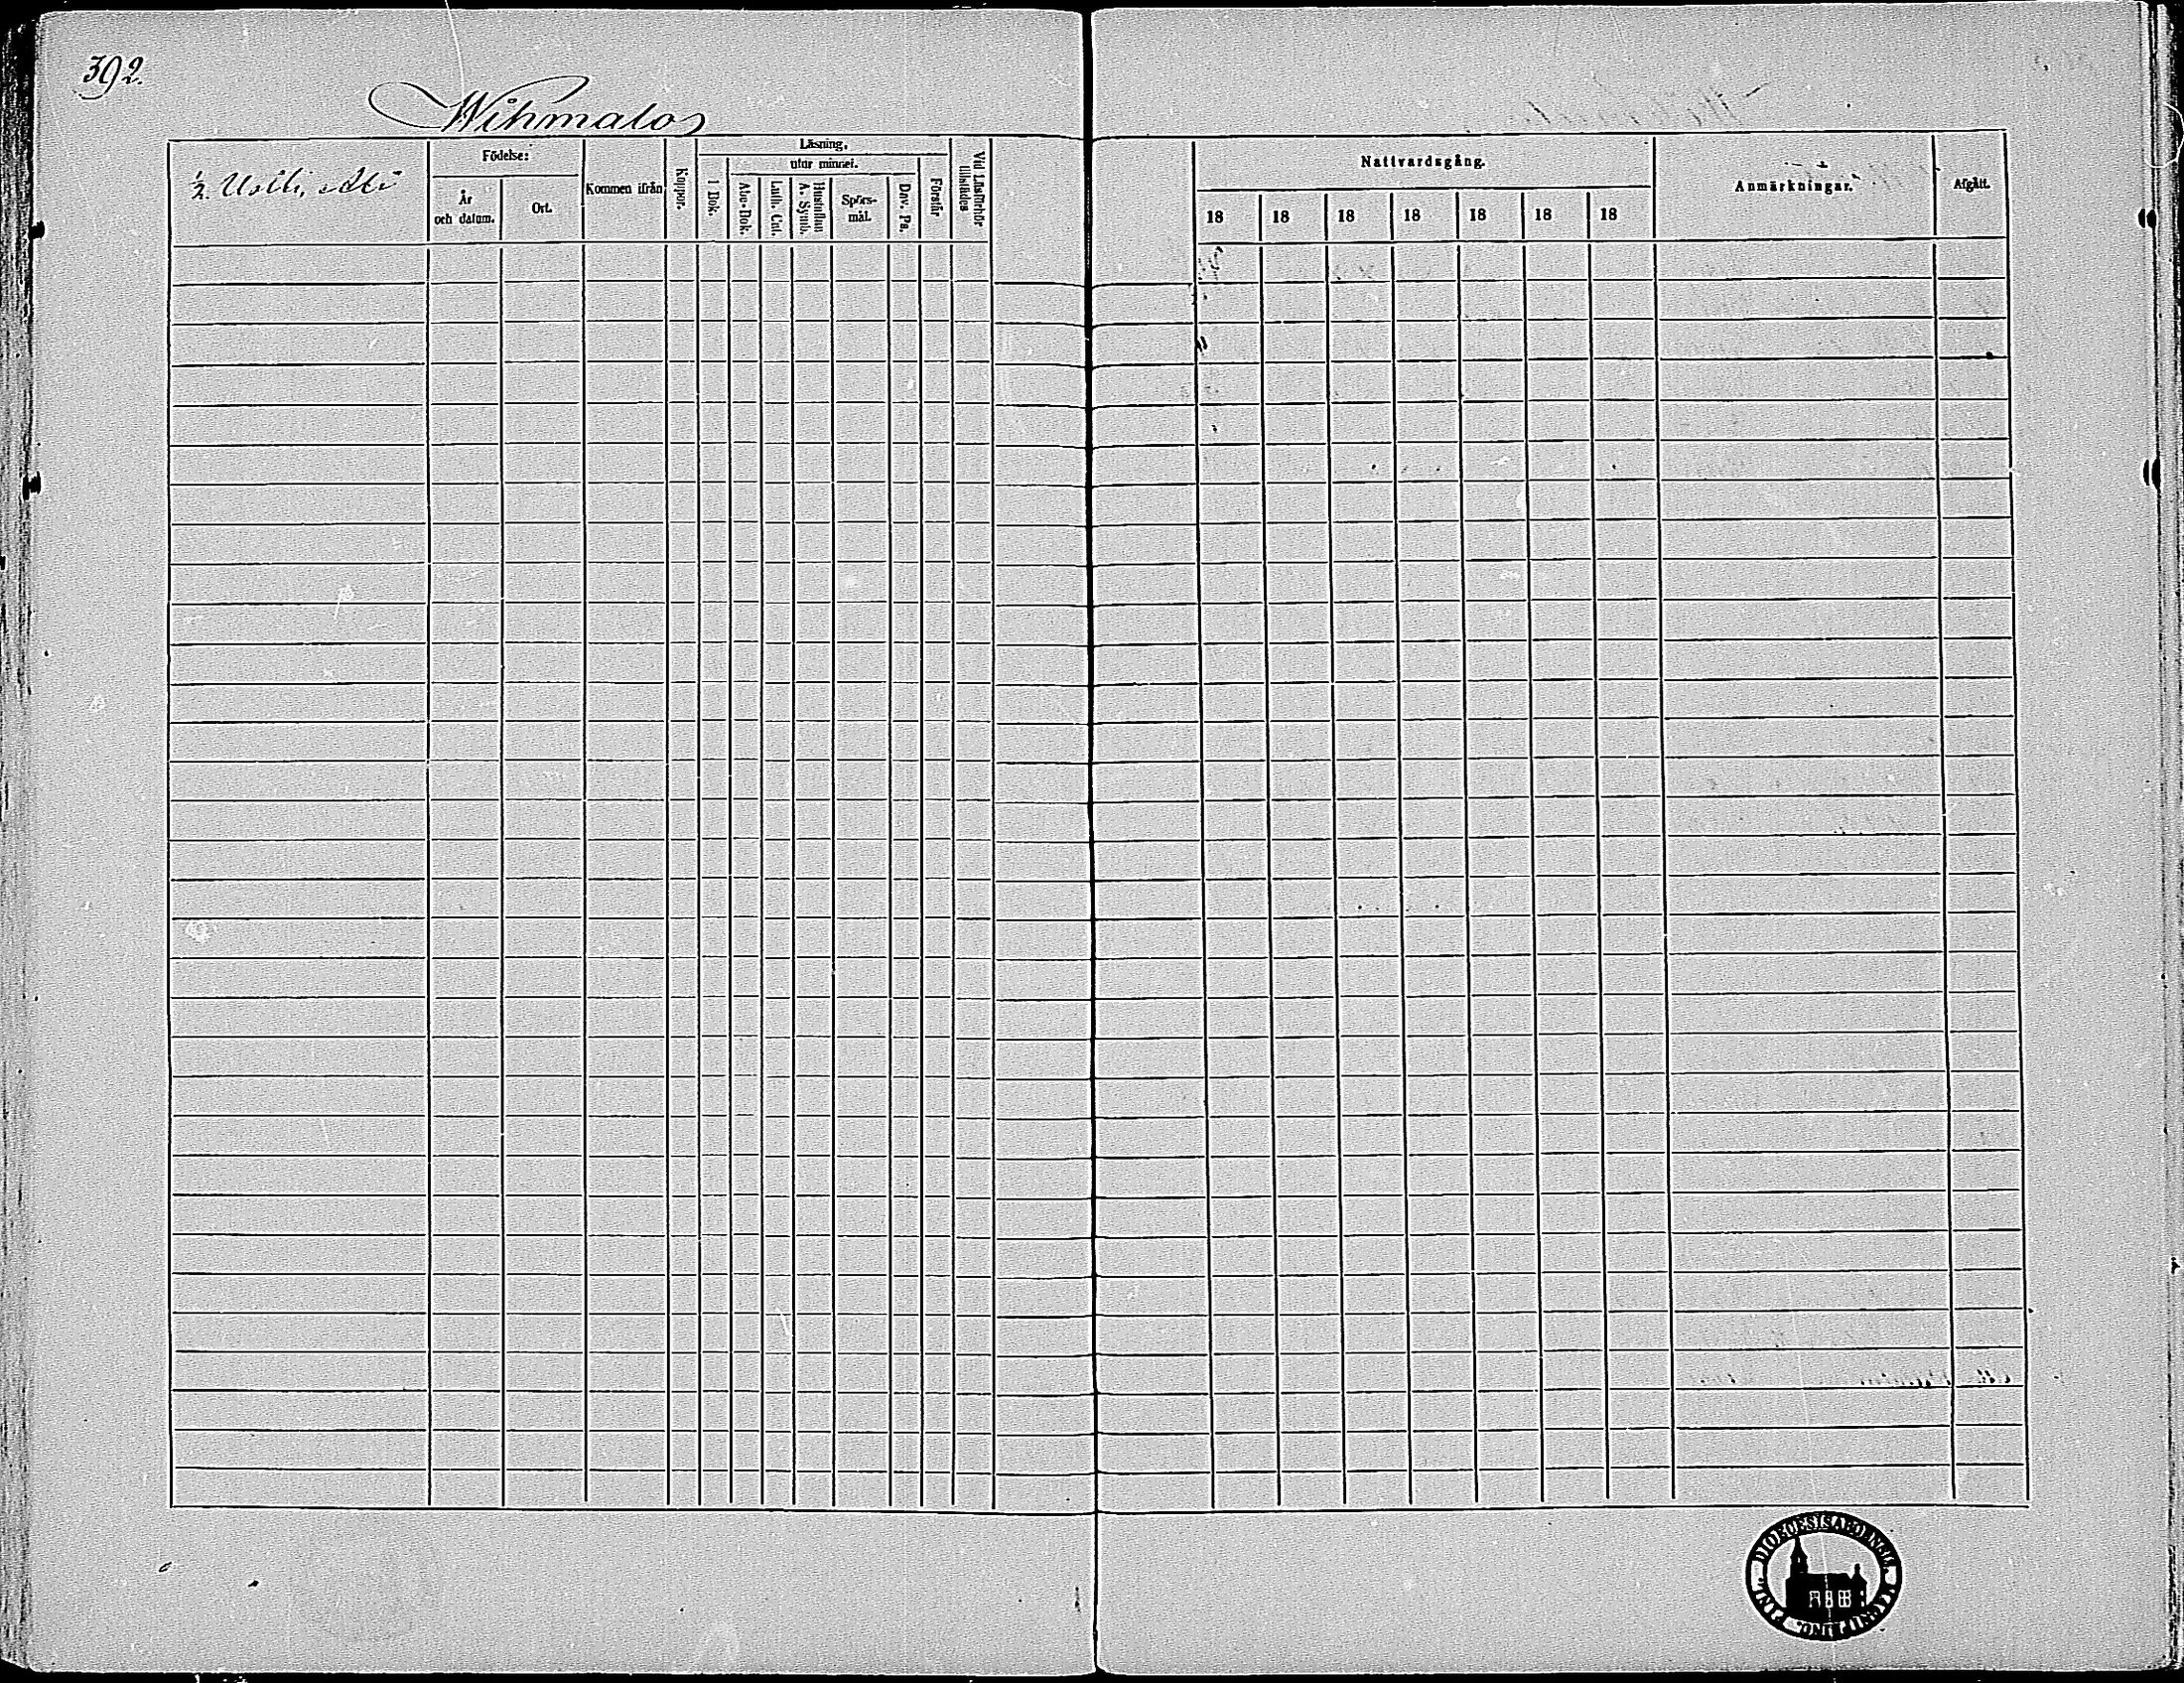 392.
Wihmalo
½. Uotti, Ali
Födelse:
År och datum.
Ort.
Kommen ifrån
Koppor.
Läsning.
I Bok.
utur minnet.
Abc-Bok.
Luth. Cat.
Hustaflan A. Symb.
Spörs-mål.
Dav. Ps.
Förstår
Vid Läsförhör tillstädes
Nattvardsgång.
18 18 18 18 18 18 18
Anmärkningar.
Afgått.
DIOECESIS ABOENSIS